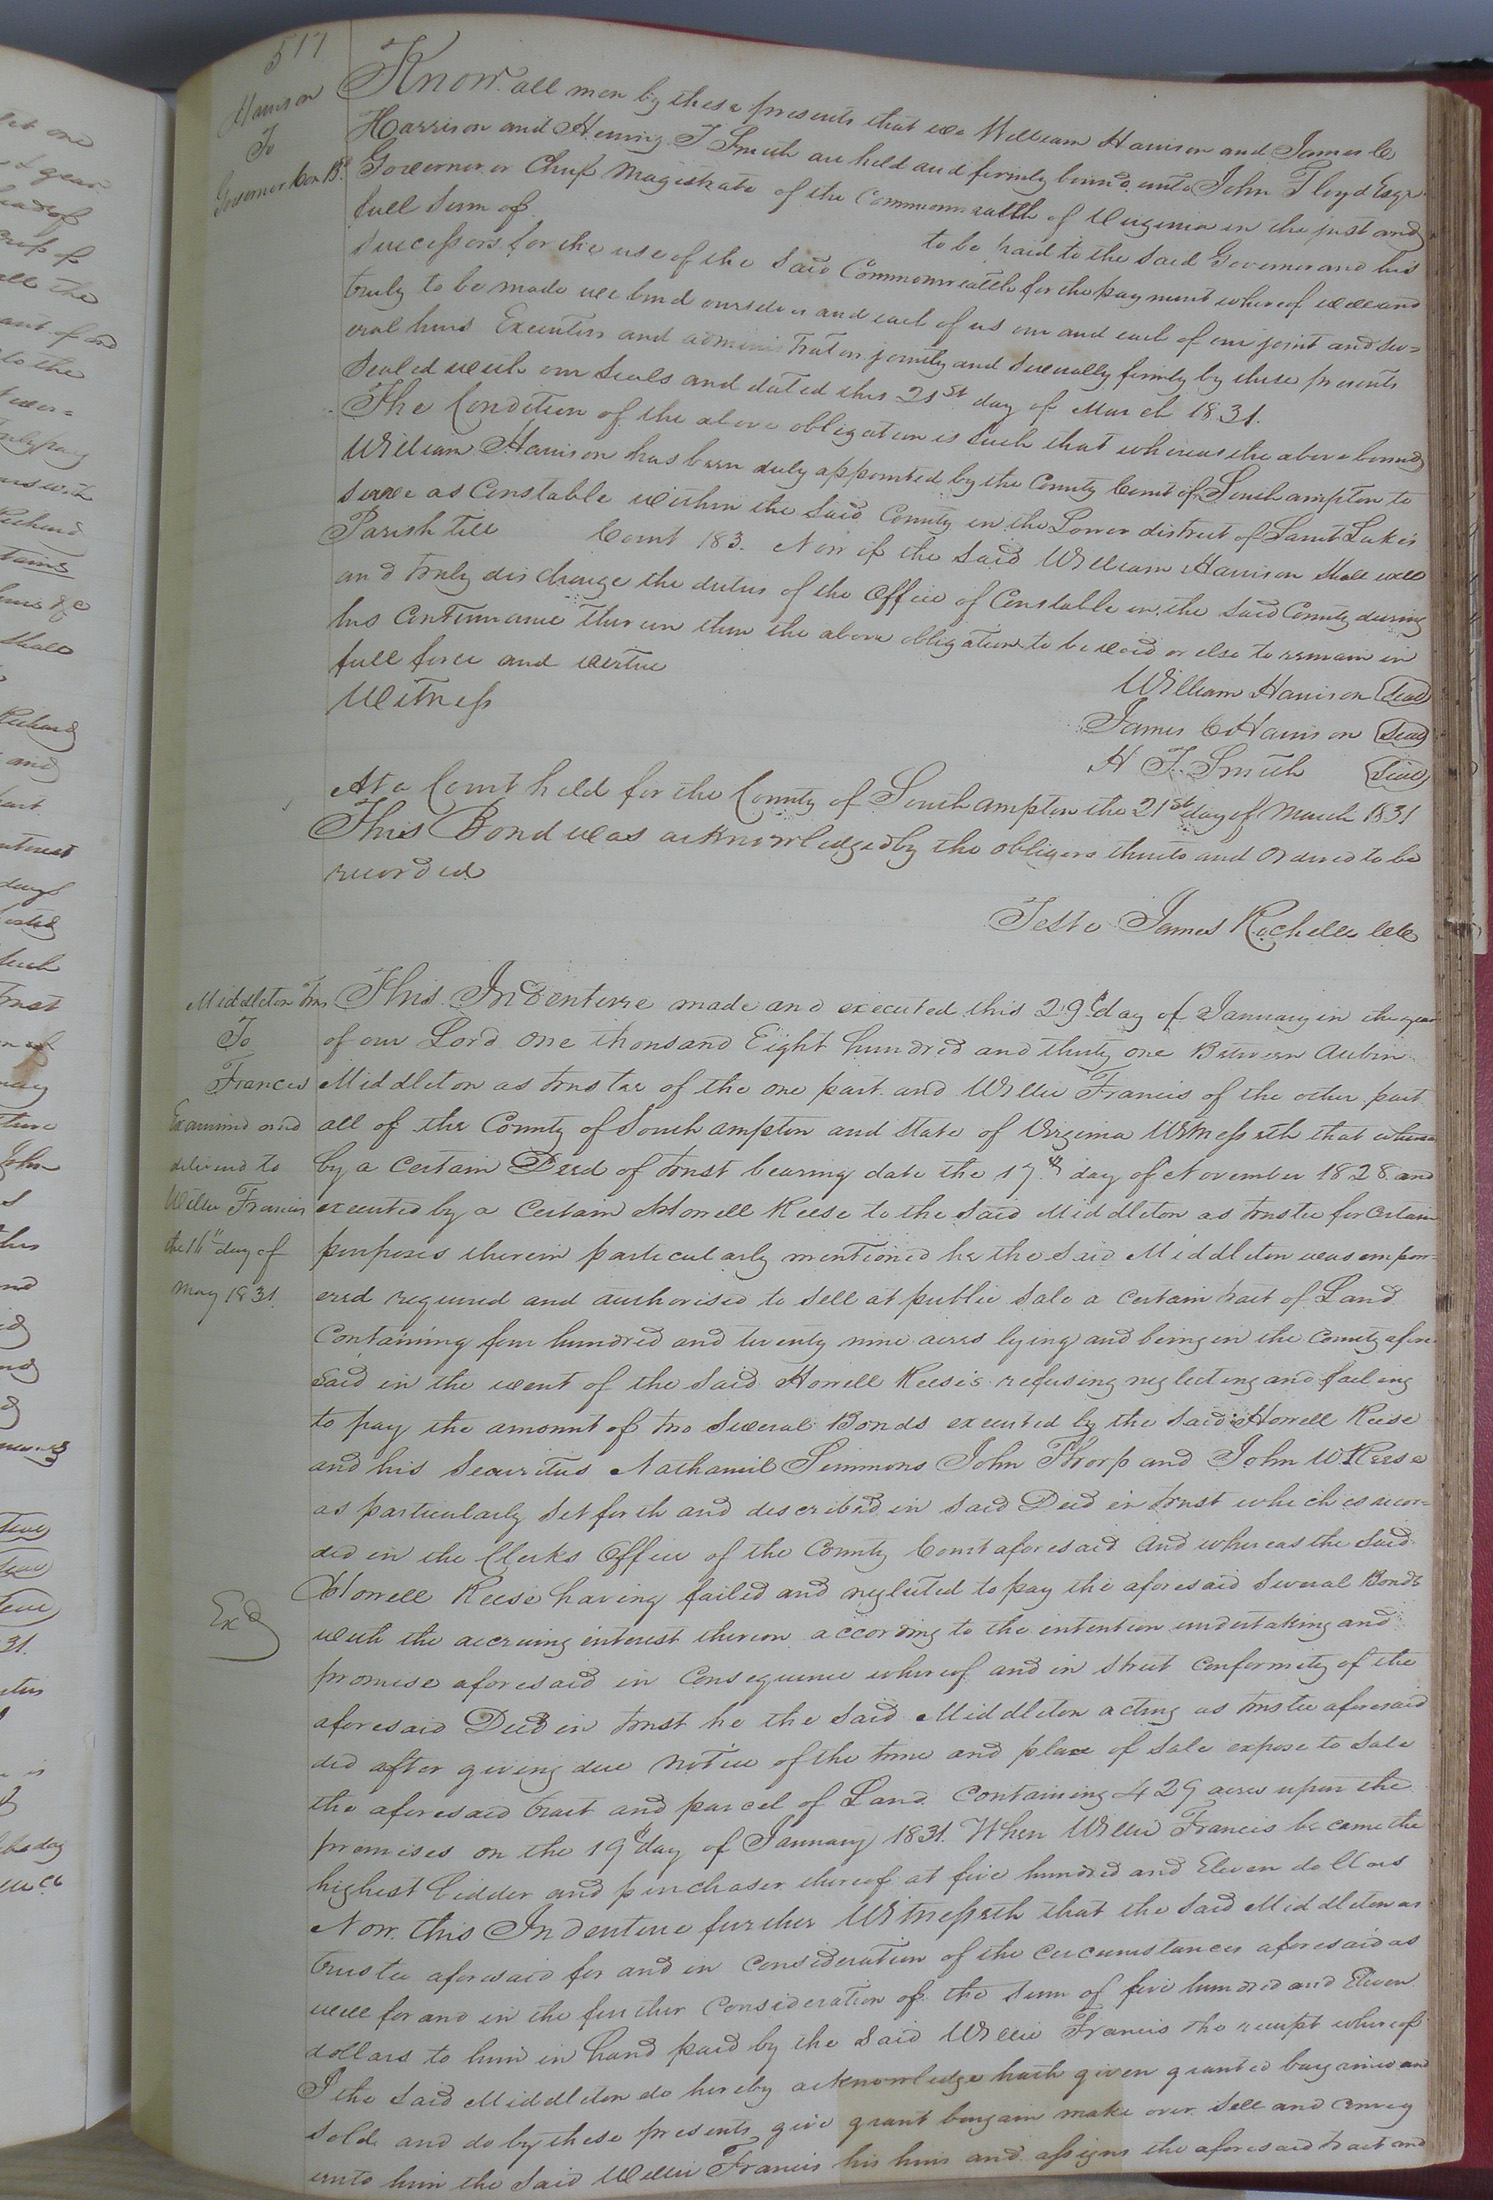 517
Harrison
To
Governor Con Bd.
Know all men by these presents that we William Harrison and James C
Harrison and Henning T Smith are held and firmly bound unto John Floyd Esqr
Governor or Chief Magistrate of the Commonwealth of Virginia in the just and
full Sum of to be paid to the said Governor and his
successors for the use of the said Commonwealth for the payment whereof well and
truly to be made we bind ourselves and each of us our and each of our joint and sev=
eral heirs Executors and administrators jointly and severally firmly by these presents
Sealed with our Seals and dated this 21st day of March 1831.
The Condition of the above obligation is such that whereas the above bound
William Harrison has been duly appointed by the County Court of Southampton to
serve as Constable within the said County in the Lower district of Saint Lukes
Parish till Court 183. Now if the said William Harrison shall well
and truly discharge the duties of the Office of Constable in the said County during
his Continuance therein then the above obligation to be void or else to remain in
full force and virtue
Witness
William Harrison (Seal)
James C Harrison (Seal)
H T. Smith (Seal)
At a Court held for the County of Southampton the 21st day of March 1831
This Bond was acknowledged by the obligors thereto and Ordered to be
recorded
Teste James Rochelle Clk
Middleton Trus
To
Francis
Examined and
delivered to
Willie Francis
the 16th day of
May 1831.
Exd
This Indenture made and executed this 29th day of January in the year
of our Lord One thousand Eight hundred and thirty one Between Aubin
Middleton as trustee of the one part and Willie Francis of the other part
all of the County of Southampton and State of Virginia Witnesseth that whereas
by a Certain Deed of trust bearing date the 17th day of November 1828 and
executed by a Certain Howell Reese to the said Middleton as trustee for Certain
purposes therein particularly mentioned he the said Middleton was empow=
ered required and authorised to sell at public Sale a Certain tract of Land
Containing four hundred and twenty nine acres lying and being in the County afore
said in the event of the said Howell Reese's refusing neglecting and failing
to pay the amount of two several Bonds executed by the said Howell Reese
and his Securities Nathaniel Simmons John Thorp and John W Reese
as particularly set forth and described in said Deed in trust which is recor=
ded in the Clerks Office of the County Court aforesaid And whereas the said
Howell Reese having failed and neglected to pay the aforesaid several Bonds
with the accruing interest thereon according to the intention undertaking and
promise aforesaid in Consequence whereof and in strict Conformity of the
aforesaid Deed in trust he the said Middleton acting as trustee aforesaid
did after giving due notice of the time and place of sale expose to sale
the aforesaid tract and parcel of Land Containing 429 acres upon the
premises on the 19th day of January 1831. When Willie Francis became the
highest bidder and purchaser thereof at five hundred and Eleven dollars
Now this Indenture further Witnesseth that the said Middleton as
trustee aforesaid for and in Consideration of the Circumstances aforesaid as
well for and in the further Consideration of the sum of five hundred and Eleven
dollars to him in hand paid by the said Willie Francis the receipt whereof
I the said Middleton do hereby acknowledge hath given granted bargained and
sold and do by these presents give grant bargain make over sell and convey
unto him the said Willie Francis his heirs and assigns the aforesaid tract and